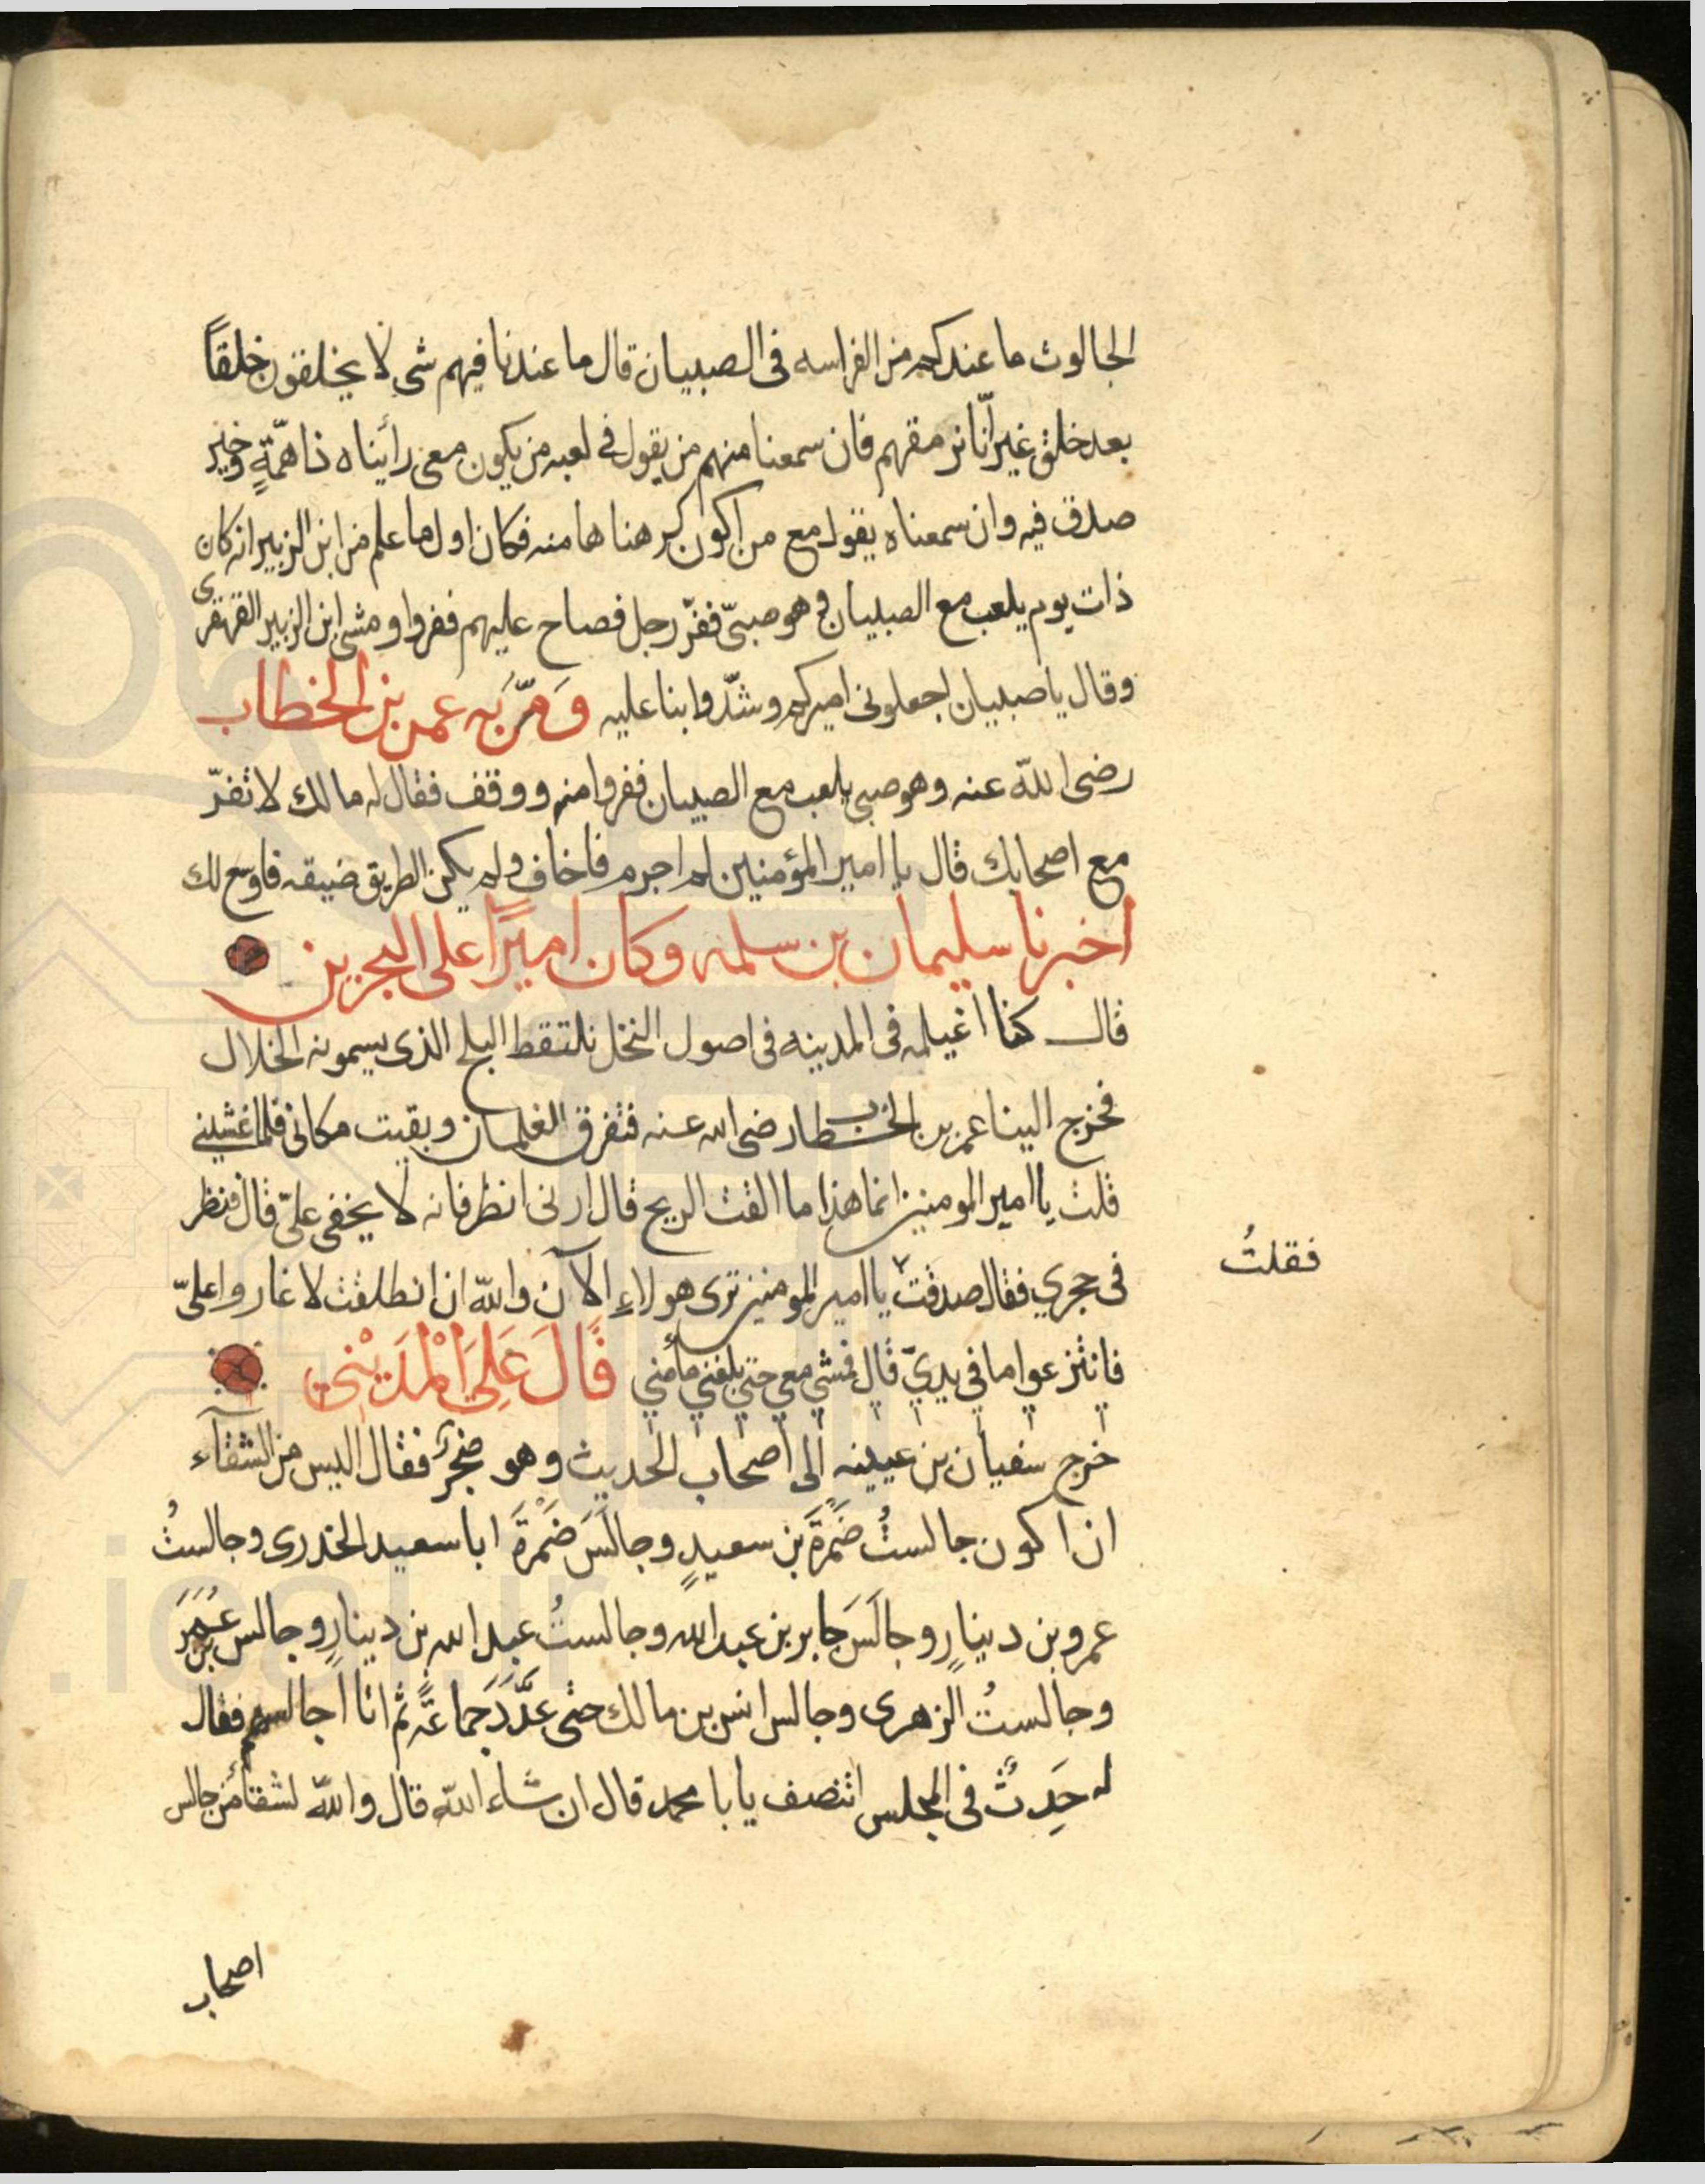 الجالوت ما عندكم من الفراسه في الصبيان قال ما عندنا فيهم شي لا يخلقون خلقاً
بعد خلق غير انّا نرمقهم فان سمعنا منهم من يقول في لعبه من يكون معي رأيناه ذا همّةٍ وخير
صدق فيه وان سمعناه يقول مع من اكون كرهنا ها منه فكان اول ما علم من ابن الزبير انه كان
ذات يوم يلعب مع الصبيان وهو صبيّ ففرّ رجل فصاح عليهم ففروا ومشى ابن الزبير القهقرى
وقال يا صبيان اجعلوني اميركم وشدّوا بنا عليه وَمرّ بَه عمر بن الخطاب
رضى اللّه عنه وهو صبي يلعب مع الصبيان ففروا منه ووقف فقال له مالك لا تفرّ
مع اصحابك قال يا امير المؤمنين لم اجرم فاخاف ولم يكن الطريق ضيقه فاوسع لك
اخبرنا سليمان بن سلمه وكان اميرًا على البحرين
قال كنا اغيلمه في المدينه في اصول النخل نلتقط البلح الذي يسمونه الخلال
فخرج الينا عمر بن الخطاب رضى الله عنه فتفرق الغلمان وبقيت مكاني فلما غشيني
قلت يا امير المومنين انما هذا ما القت الريح قال ارني انظر فانه لا يخفى عليّ قال فنظر
في حجري فقال صدقت يا امير المومنين ترى هولاءِ الآن واللّه ان انطلقت لاغاروا عليّ
فقلتُ
فانتزعوا ما في يديّ قال فمشي معي حتي بلغني مأمني قالَ عَلِيَ المْدَيْني
خرج سفيان بن عيينه إلى أصحاب الحديث وهو ضجرٌ فقال اليس من الشقآء
ان اكون جالستُ ضَمْرَةَ بن سعيدٍ وجالَسَ ضَمْرَةَ ابا سعيد الخدرى وجالستُ
عمرو بن دينارٍ وجالَسَ جابر بن عبد اللّه وجالستُ عبد الله بن دينارٍ وجالس بن عُمَرَ
وجالستُ الزهرى وجالس انس بن مالك حتى عدَّدَ جماعَةً ثم انا اجالسهم فقال
له حَدِثٌ في المجلس اتنصف يابا محمد قال ان شاء اللّه قال واللّه لشقآءُ من جالس
اصحاب